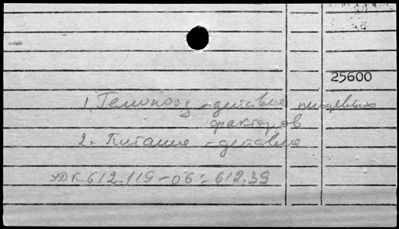 25600
1. Гемопоэз - действие пищевых
факторов
2. Питание - действие
УДК 612.119-06:612.39